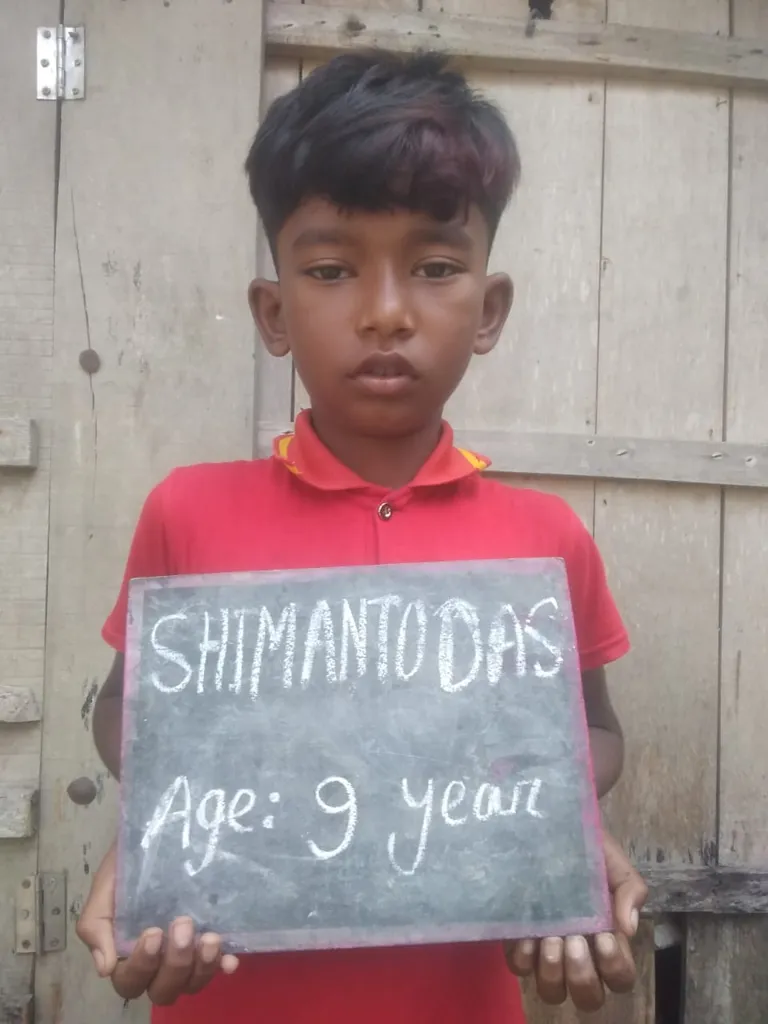 SHIMANTO DAS
Age: 9 year